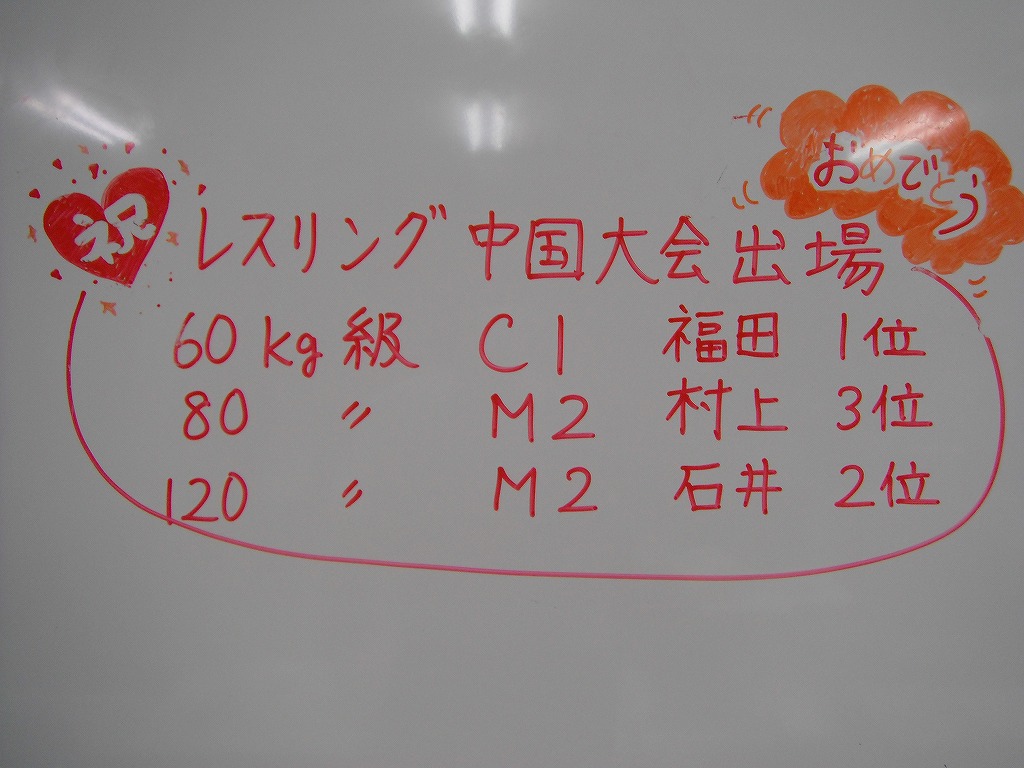 祝
おめでとう
レスリング中国大会出場
60kg級 C1 福田 1位
80 〃 M2 村上 3位
120 〃 M2 石井 2位